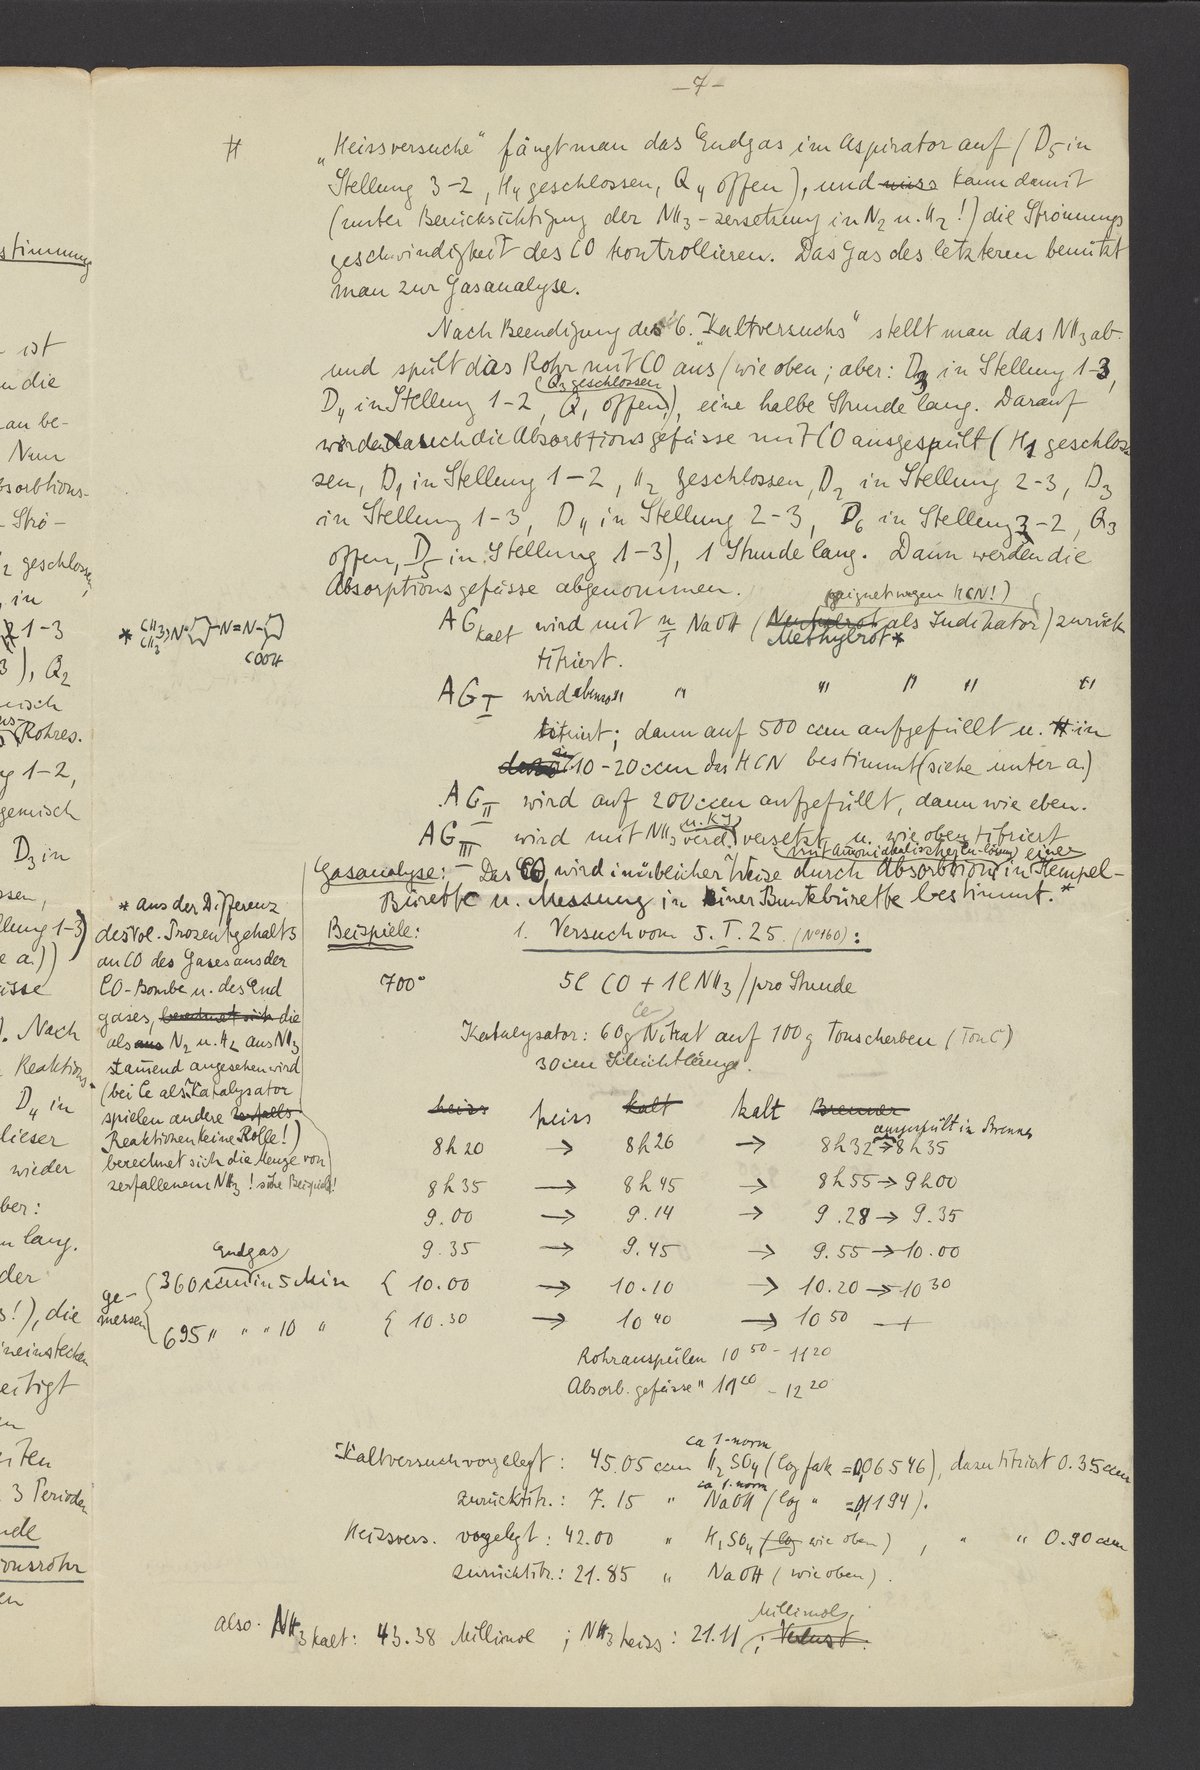 -7-
# „Heissversuche“ fängt man das Endgas im Aspirator auf (D5 in
Stellung 3-2, H4 geschlossen, Q4 offen), und kann damit
(unter Berücksichtigung der NH3-zersetzung in N2 u. H2!) die Strömungs
geschwindigkeit des CO kontrollieren. Das Gas des letzteren benützt
man zur Gasanalyse.
Nach Beendigung des 6. „Kaltversuchs“ stellt man das NH3 ab
und spült das Rohr mit CO aus (wie oben; aber: D3 in Stellung 1-3,
(Q3 geschlossen
D4 in Stellung 1-2, Q1 offen), eine halbe Stunde lang. Darauf
werden auch die Absorbtionsgefässe mit CO ausgespült (H1 geschlos
sen, D1 in Stellung 1-2, H2 geschlossen, D2 in Stellung 2-3, D3
in Stellung 1-3, D4 in Stellung 2-3, D6 in Stellung 3-2, Q3
offen, D5 in Stellung 1-3), 1 Stunde lang. Dann werden die
Absorptionsgefässe abgenommen.
geeignet wegen HCN!)
AG kalt wird mit n/1 NaOH (Neutralrot als Indikator) zurück
Methylrot*
titriert.
* CH3 CH3 >N- -N=N- COOH
AG I wird ebenso " " " " " "
titriert; dann auf 500 ccm aufgefüllt u. in
in 10-20 ccm das HCN bestimmt (siehe unter a.)
AG II wird auf 200 ccm aufgefüllt, dann wie eben.
u. KJ
AG III wird mit NH3 verd. versetzt u. wie oben titriert
mit ammoniakalischer Cu-lösung einer
Gasanalyse: Das CO wird in üblicher Weise durch Absorbtion in Hempel-
Bürette u. Messung in einer Buntebürette bestimmt.*
* aus der Differenz
des Vol. Prozentgehalts
an CO des Gases aus der
CO-Bombe u. des End
gases, berechnet sich die
als aus N2 u. H2 aus NH3
stammend angesehen wird
(bei Ce als Katalysator
spielen andere Zerfalls
Reaktionen keine Rolle!)
berechnet sich die Menge von
zerfallenem NH3! siehe Beispiele!
Beispiele: 1. Versuch vom 5. I. 25. (No 160):
700° 5l CO + 1l NH3 / pro Stunde
Ce
Katalysator: 60g Nitrat auf 100 g Tonscherben (Ton C)
30 cm Schichtlänge.
heiss heiss kalt kalt Brenner
ausgespült in Brenner
8h20 → 8h26 → 8h32 → 8h35
8h35 → 8h45 → 8h55 → 9h00
9.00 → 9.14 → 9.28 → 9.35
9.35 → 9.45 → 9.55 → 10.00
Endgas
ge-
messen
360 ccm in 5 Min { 10.00 → 10.10 → 10.20 → 10 30
695 " " " 10 " { 10.30 → 10 40 → 10 50 —+
Rohrausspülen 10 50 - 11 20
Absorb. gefässe " 11 20 - 12 20
ca 1-norm
Kaltversuch vorgelegt: 45.05 ccm H2SO4 (log fak = 0,06546), dazu titriert 0.35 ccm
ca 1-norm
zurücktitr.: 7.15 " NaOH (log " = 0,1194).
Heissvers. vorgelegt: 42.00 " H2SO4 (log wie oben), " " 0.90 ccm
zurücktitr.: 21.85 " NaOH (wie oben).
Millimol;
also. NH3 kalt: 43.38 Millimol; NH3 heiss: 21.11; Verlust:
stimmung
ist
die
an be-
Nun
bsorbtions-
Strö-
geschlossen,
in
1-3
), Q2
Rohres.
1-2,
gemisch
D3 in
ssen,
llung 1-3)
e a.))
Nach
Reaktions-
D4 in
dieser
wieder
ber:
lang.
der
s!), die
ineinstecken
eitigt
3 Perioden
onsrohr